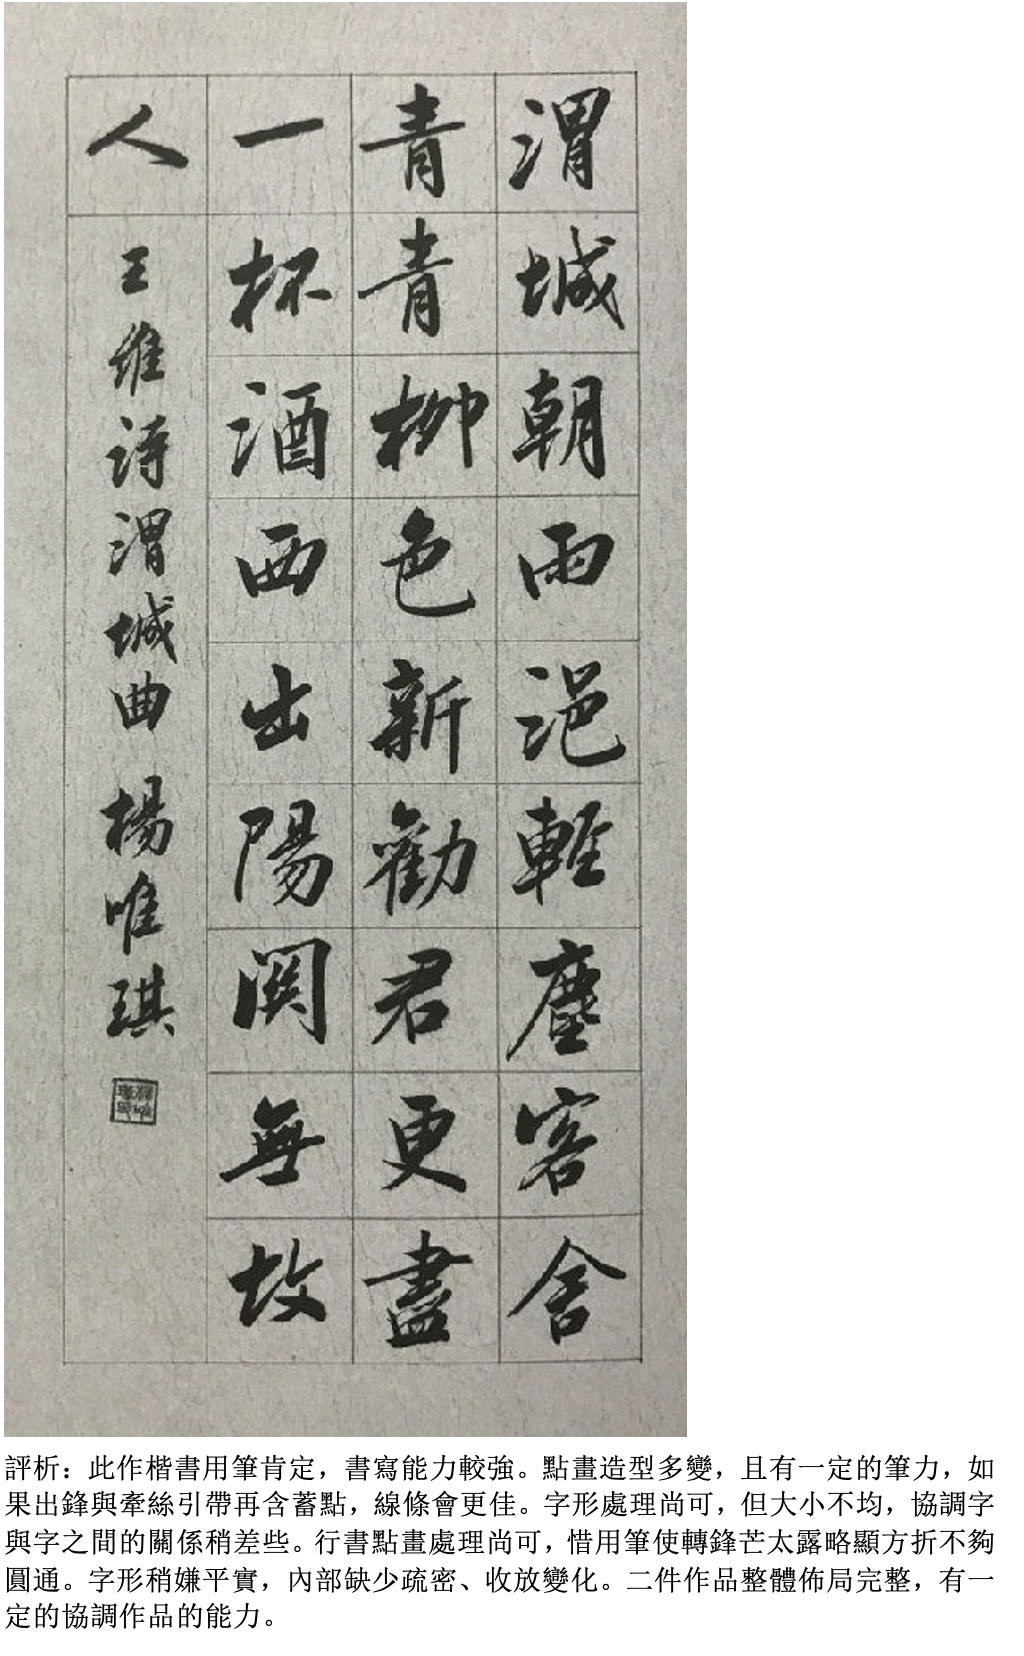 渭城朝雨浥輕塵客舍
青青柳色新勸君更盡
一杯酒西出陽関無故
人
王維詩渭城曲 楊唯琪
評析：此作楷書用筆肯定，書寫能力較強。點畫造型多變，且有一定的筆力，如
果出鋒與牽絲引帶再含蓄點，線條會更佳。字形處理尚可，但大小不均，協調字
與字之間的關係稍差些。行書點畫處理尚可，惜用筆使轉鋒芒太露略顯方折不夠
圓通。字形稍嫌平實，內部缺少疏密、收放變化。二件作品整體佈局完整，有一
定的協調作品的能力。